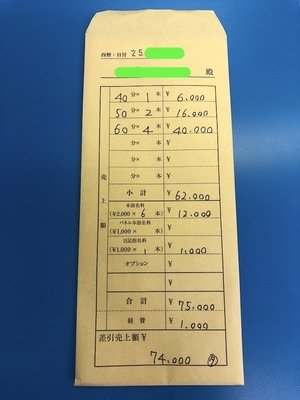 西暦・日付 25
殿
40 分× 1 本 ¥ 6.000
50 分× 2 本 ¥ 16.000
60 分× 4 本 ¥ 40.000
分× 本 ¥
分× 本 ¥
分× 本 ¥
売上額
小計 ¥ 62.000
本指名料
(¥2,000 × 6 本) ¥ 12.000
パネル本指名料
(¥1,000 × 本) ¥
日記指名料
(¥1,000 × 1 本) ¥ 1.000
オプション ¥
¥
合計 ¥ 75.000
経費 ¥ 1.000
差引売上額 ¥
74.000